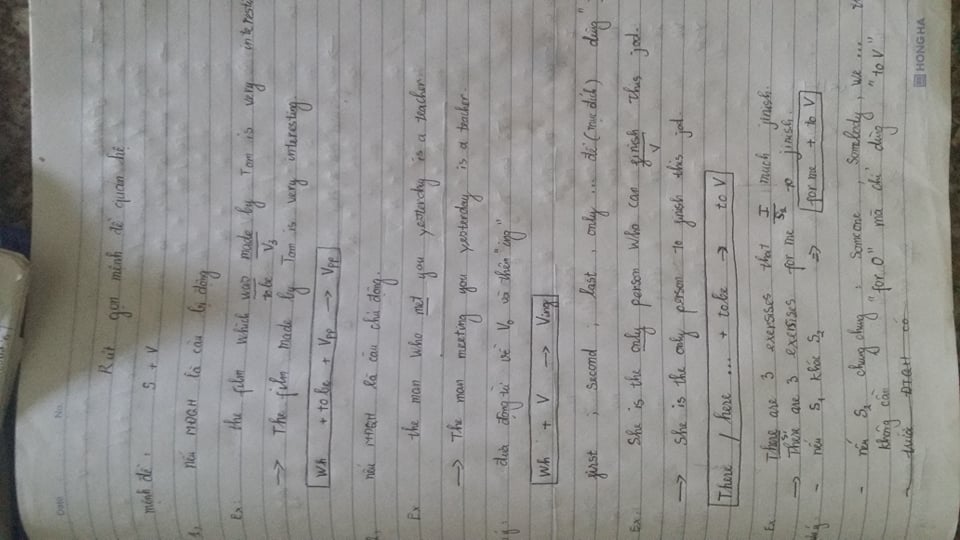 Date No.
Rút gọn mệnh đề quan hệ
mệnh đề : S + V
1, nếu MĐQH là câu bị động
Ex : the film which was made by Tom is very interesti
to be V3
→ The film made by Tom is very interesting.
Wh + to be + Vpp → Vpp
nếu MĐQH là câu chủ động.
Ex the man who met you yesterday is a teacher.
→ The man meeting you yesterday is a teacher.
ý : đưa động từ về V₀ và thêm "ing"
Wh + V → Ving
first ; second ; last , only ... để (mục đích) dùng "
Ex : She is the only person who can finish this jod.
V
→ She is the only person to finish this jod.
There / here ... + to be → to V
Ex There are 3 exercises that I much finish.
S1 S2
→ There are 3 exercises for me to finish
ý : - nếu S1 khác S2 ⇒ for me + to V
- nếu S2 chung chung : Someone , Somebody , we ...
không cần "for O" mà chỉ dùng "to V"
ĐTQH có
HONG HA